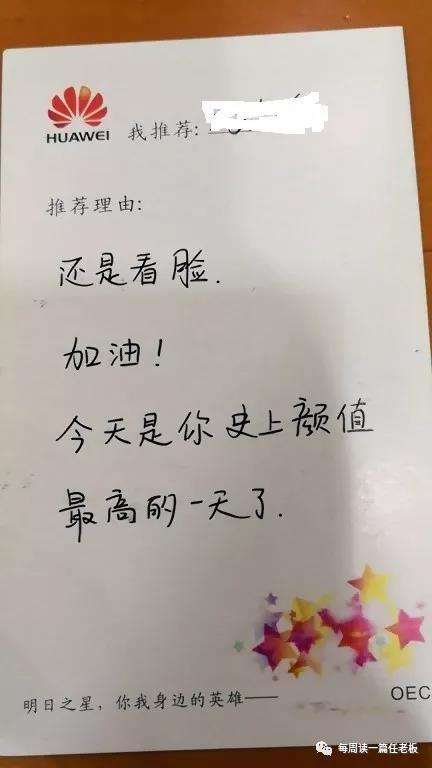 HUAWEI
我推荐:
推荐理由:
还是看脸.
加油!
今天是你史上颜值
最高的一天了.
明日之星，你我身边的英雄——
OEC
每周读一篇任老板